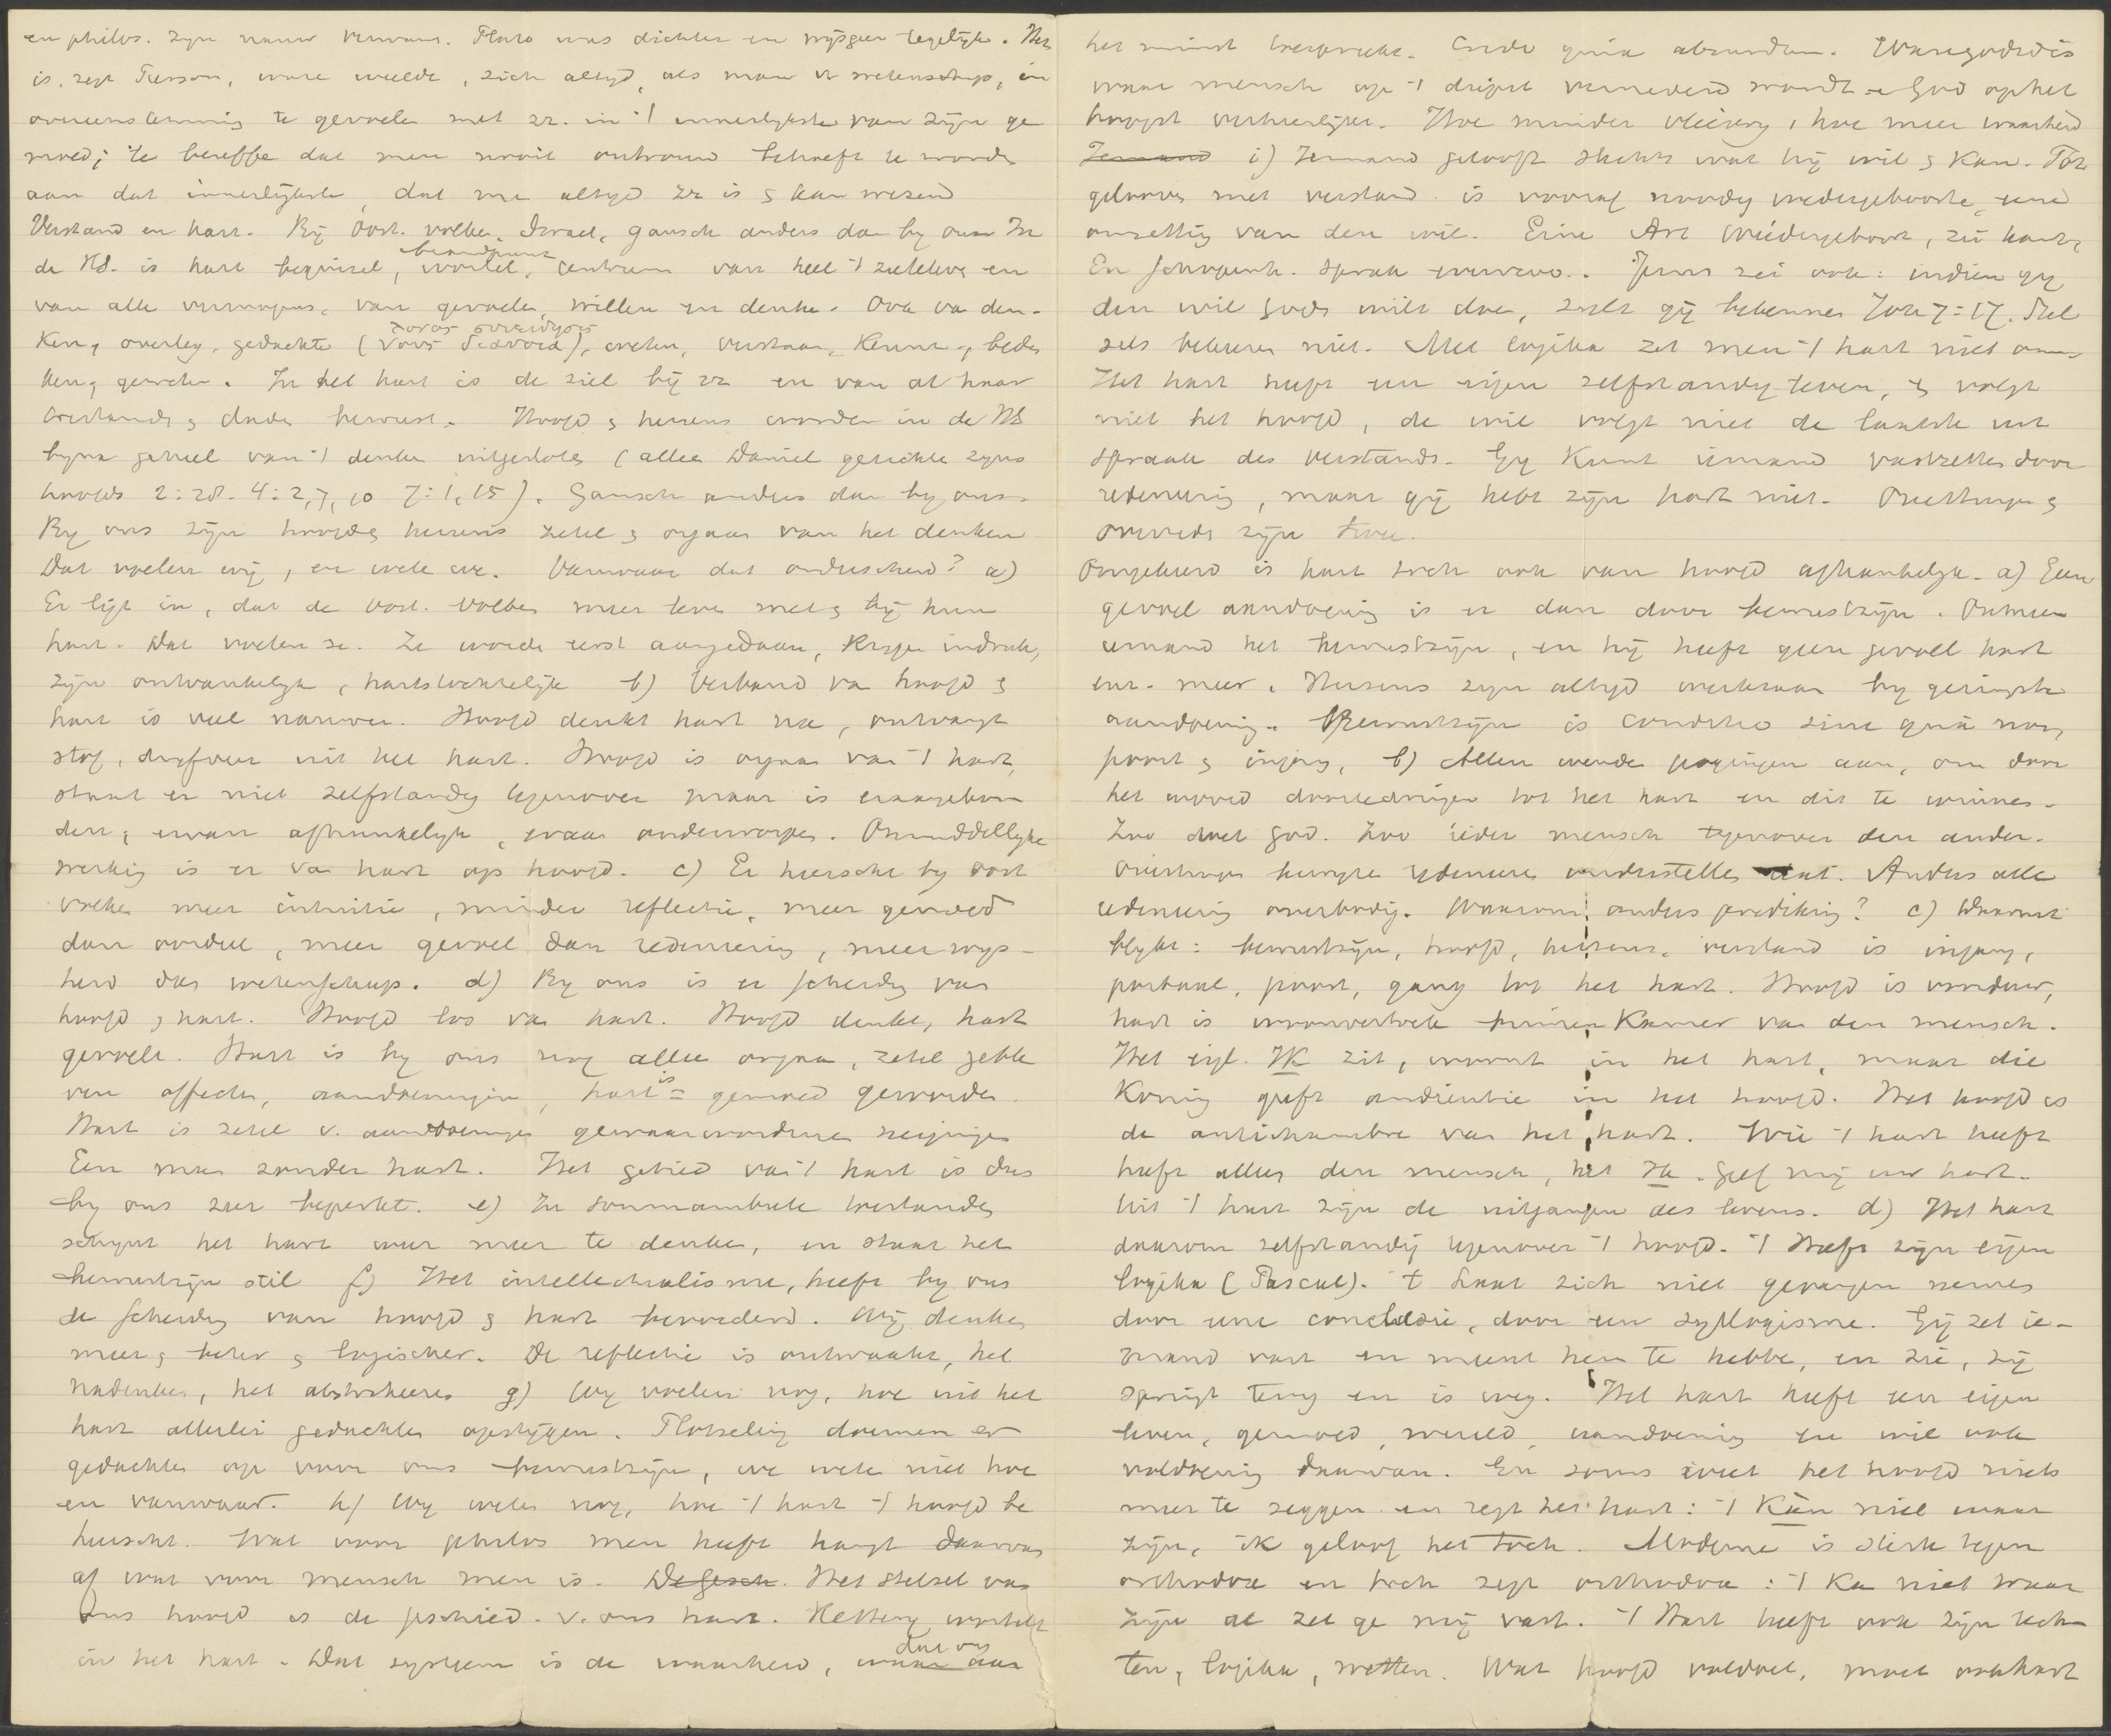 en philos. zijn nauw verwant. Plato was dichter en wijsgeer tegelijk. Het
is, zegt Pierson, ware weelde, zich altijd, als man v wetenschap, in
overeenstemming te gevoelen met zr. in 't innerlijkste van zijn ge
moed; te beseffe dat men nooit ontrouw behoeft te worde
aan dat innerlijkste, dat me altijd zr is & kan wezen
Verstand en hart. Bij Oost. volken, Israel, gansch anders dan bij ons. In
de HS. is hart beginsel, wortel, brandpunt centrum van heel 't zieleleve en
van alle vermogens, van gevoelen, willen en denke. Ook va den-
ken, overleg, gedachte (νους διανοια), weten, verstaan, kenne, beden
ken, geweten. In het hart is de ziel bij zr en van al haar
toestande & dade bewust. Hoofd & hersens worden in de HS
bijna geheel van 't denke uitgeslote (allee Daniel gezichte zijns
hoofds 2:28. 4:2,7,10 7:1,15). Gansch anders dan bij ons.
Bij ons zijn hoofd & hersens zetel & orgaan van het denken
Dat voelen wij, en wete we. Vanwaar dat onderscheid? a)
Er ligt in, dat de oost. volken meer leve met & bij hun
hart. Dat voelen ze. Ze worde eerst aangedaan, krijge indruk,
zijn ontvankelijk, hartstochtelijk b) Verband va hoofd &
hart is veel nauwer. Hoofd denkt hart na, ontvangt
stof, drijfveer uit het hart. Hoofd is orgaa van 't hart,
staat er niet zelfstandig tegenover maar is eraangebon
den, ervan afhankelijk, eraan onderworpe. Onmiddellijke
werking is er va hart op hoofd. c) Er heerscht bij oost
volke meer intuitie, minder reflectie, meer gemoed
dan oordeel, meer gevoel dan redeneering, meer wijs-
heid dan wetenschap. d) Bij ons is er scheiding van
hoofd & hart. Hoofd los va hart. Hoofd denkt, hart
gevoelt. Hart is bij ons nog allee orgaa, zetel
van affecte, aandoeningen, hart is = gemoed geworden.
Hart is zetel v. aandoeninge gewaarwordinge neiginge
Een man zonder hart. Het gebied van 't hart is dus
bij ons zeer beperkt. e) In somnambule toestande
schijnt het hart weer meer te denke, en staat het
bewustzijn stil f) Het intellectualisme, heeft bij ons
de scheiding van hoofd & hart bevorderd. Wij denke
meer & beter & logischer. De reflectie is ontwaakt, het
nadenken, het abstraheeren g) Wij voelen nog, hoe uit het
hart allerlei gedachte opstijgen. Plotseling doemen er
gedachte op voor ons bewustzijn, we wete niet hoe
en vanwaar. h) Wij weten nog, hoe 't hart 't hoofd be
heerscht. Wat voor philos men heeft hangt daarvan
af wat voor mensch men is. De gesch. Het stelsel van
Ons hoofd is de geschied. v. ons hart. Ketterij wortelt
in het hart. Dat systeem is de waarheid, waar aan dat ons
het minst bevredigt. Credo quia absurdum. Ware godsd is
waar mensch op 't diepst vernederd wordt en God op het
hoogst verheerlijkt. Hoe minder vleiery, hoe meer waarheid
Iemand i) Iemand gelooft slechts wat hij wil & kan. Tot
gelooven met verstand is vooraf noodig wedergeboorte, eene
omzetting van den wil. Eine Art Wiedergeburt, zei Kant,
En Schopenh. sprak evenzoo. Jezus zei ook: indien gij
den wil Gods wilt doe, zult gij bekennen Joh 7:17. Stel
sels bekeeren niet. Met logika zet men 't hart niet om
Het hart heeft een eigen zelfstandig leven, & volgt
niet het hoofd, de wil volgt niet de laatste uit
spraak des verstands. Gij kunt iemand vastzetten door
redeneering, maar gij hebt zijn hart niet. Overtuigen &
overreden zijn twee.
Omgekeerd is hart toch ook van hoofd afhankelijk. a) Een
gevoel aandoening is er dan door bewustzijn. Ontneem
iemand het bewustzijn, en hij heeft geen gevoel hart
enz. meer. Hersens zijn altijd werkzaam bij geringste
aandoening. Bewustzijn is conditio sine qua non,
poort & ingang, b) Allen wende pogingen aan, om door
het woord doortedringen tot het hart en dit te winnen.
Zoo doet God. Zoo ieder mensch tegenover den ander.
Overtuige bewijze redeneere onderstellen dat. Anders alle
redeneering overbodig. Waarom anders prediking? c) Daaruit
blijkt: bewustzijn, hoofd, hersens, verstand is ingang,
portaal, poort, gang tot het hart. Hoofd is voordeur,
hart is binnen Kamer van den mensch.
Het eigl. IK zit, woont in het hart, maar die
Koning geeft audientie in het hoofd. Het hoofd is
de antichambre van het hart. Wie 't hart heeft
heeft alles den mensch, het Ik. Geef mij uw hart.
Uit 't hart zijn de uitgangen des levens. d) Het hart
daarom zelfstandig tegenover 't hoofd. 't Heeft zijn eigen
logika (Pascal). 't Laat zich niet gevangen nemen
door eene conclusie, door een syllogisme. Gij zet ie-
mand vast en meent hem te hebbe, en zie, hij
springt terug en is weg. Het hart heeft een eigen
leven, gemoed, wereld, aandoening en wil ook
voldoening daarvan. En soms weet het hoofd niets
meer te zeggen en zegt het hart: 't Kan niet waar
zijn, ik geloof het toch. Moderne is sterk tegen
orthodox en toch zegt orthodox: 't Ka niet waar
zijn al zet ge mij vast. 't Hart heeft ook zijn rech
ten, logika, wetten. Wat hoofd voldoet, moet ook hart